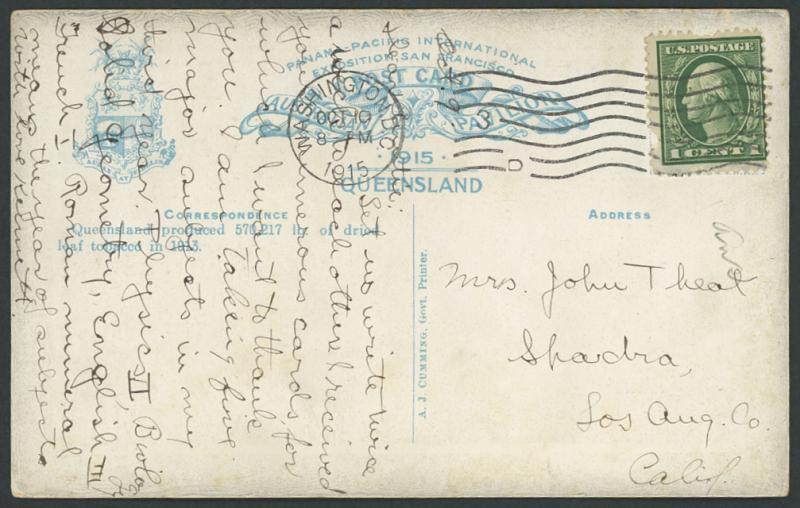 PANAMA-PACIFIC INTERNATIONAL
EXPOSITION, SAN FRANCISCO
POST CARD
AUSTRALIAN PAVILION
· 1915 ·
QUEENSLAND
WASHINGTON, D.C.
OCT 19
8 AM
1915
3
D
U.S. POSTAGE
1 CENT 1
CORRESPONDENCE
Queensland produced 570,217 lb. of dried
leaf tobacco in 1913.
A. J. CUMMING, Govt. Printer.
ADDRESS
Mrs. John Theal
Spadra,
Los Ang. Co.
Calif.
Let us write twice
a to each other. I received
your numerous cards for
which I want to thank
you. I am taking five
major subjects in my
third year. Physics II, Biology
Solid Geometry, English III
each I. Roman numeral
means the year of subjects
With love